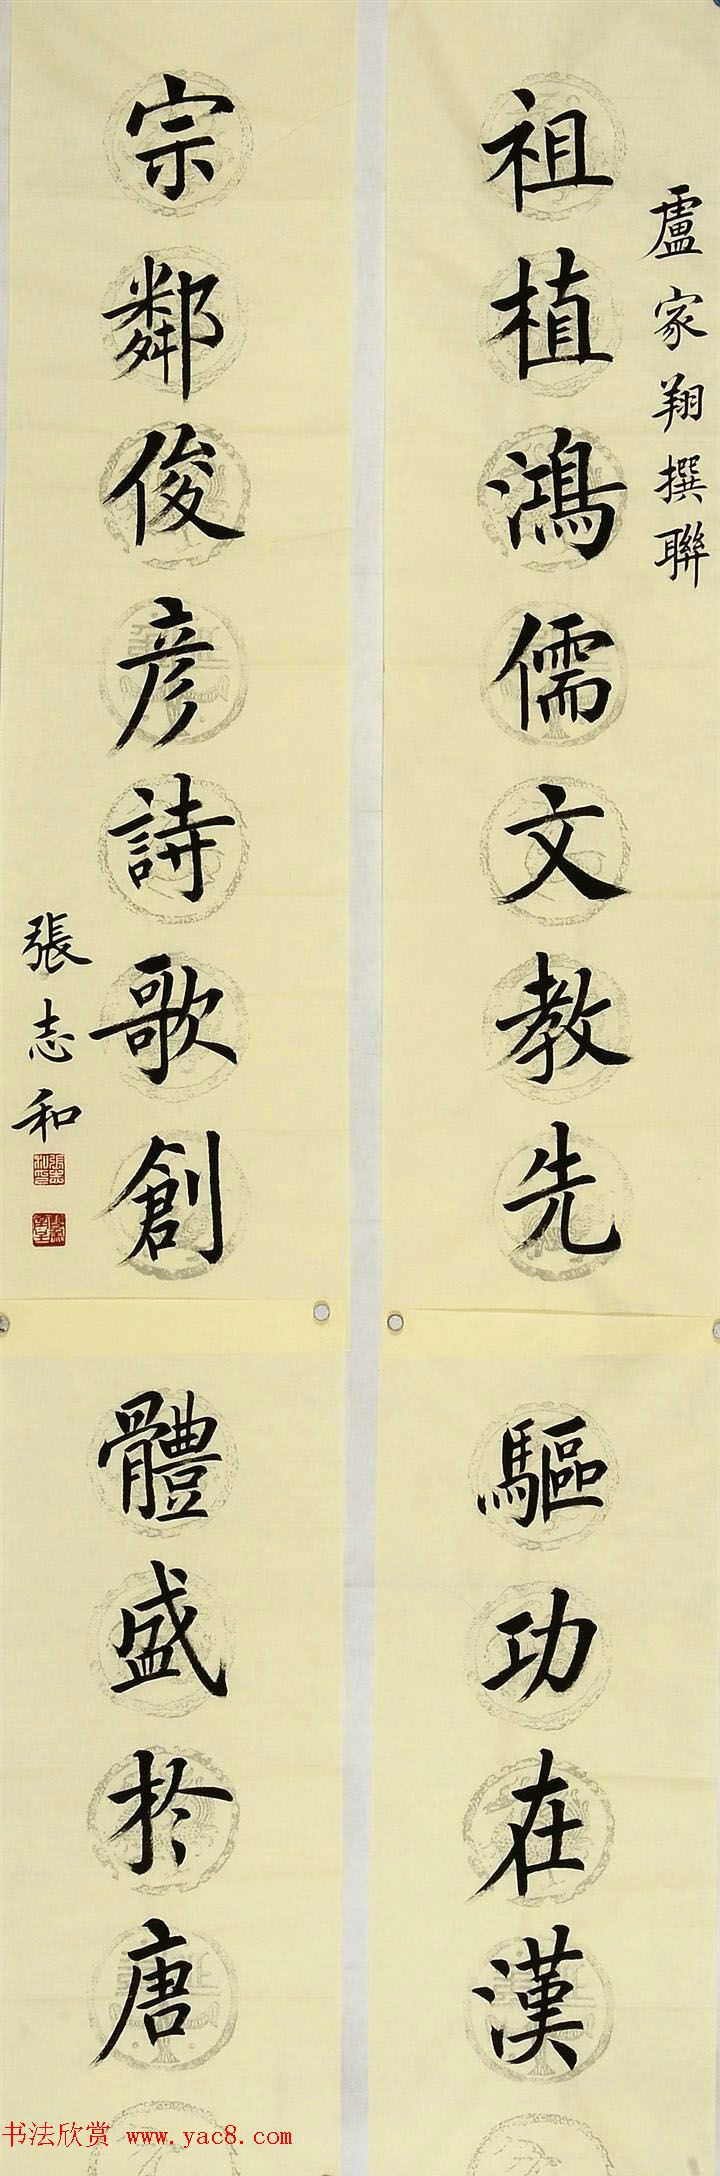 盧家翔撰聯
祖植鴻儒文教先驅功在漢
宗鄰俊彦詩歌創體盛於唐
張志和
书法欣赏 www.yac8.com